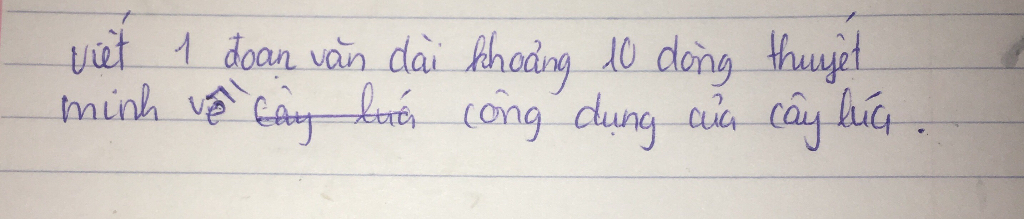 viết 1 đoạn văn dài khoảng 10 dòng thuyết
minh về cây lúa công dụng của cây lúa.